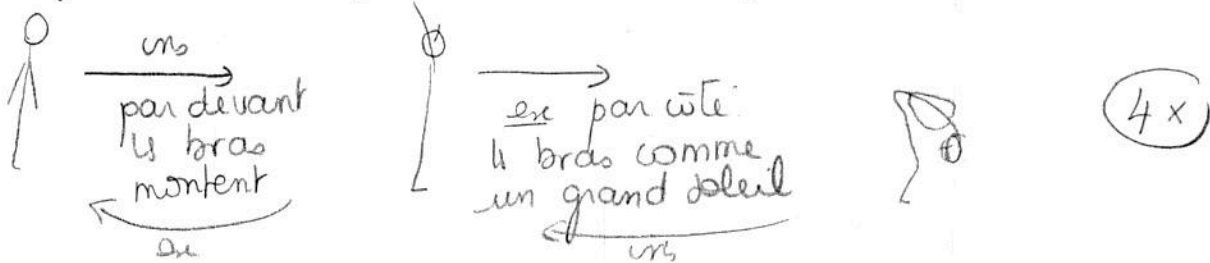 ins
par devant
ls bras
montent
exe
exe par côté
ls bras comme
un grand soleil
ins
4x